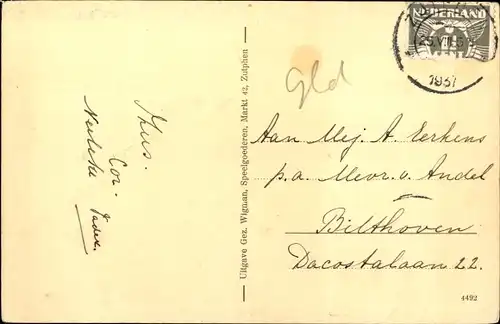 NEDERLAND
25.VIII.5
1937
Gld
Thus.
Cor.
Vader.
Uitgave Gez. Wigman, Speelgoederen, Markt 42, Zutphen
Aan Mej. A. Eerkens
p.a. Mevr. v. Andel
Bilthoven
Dacostalaan 22.
4492